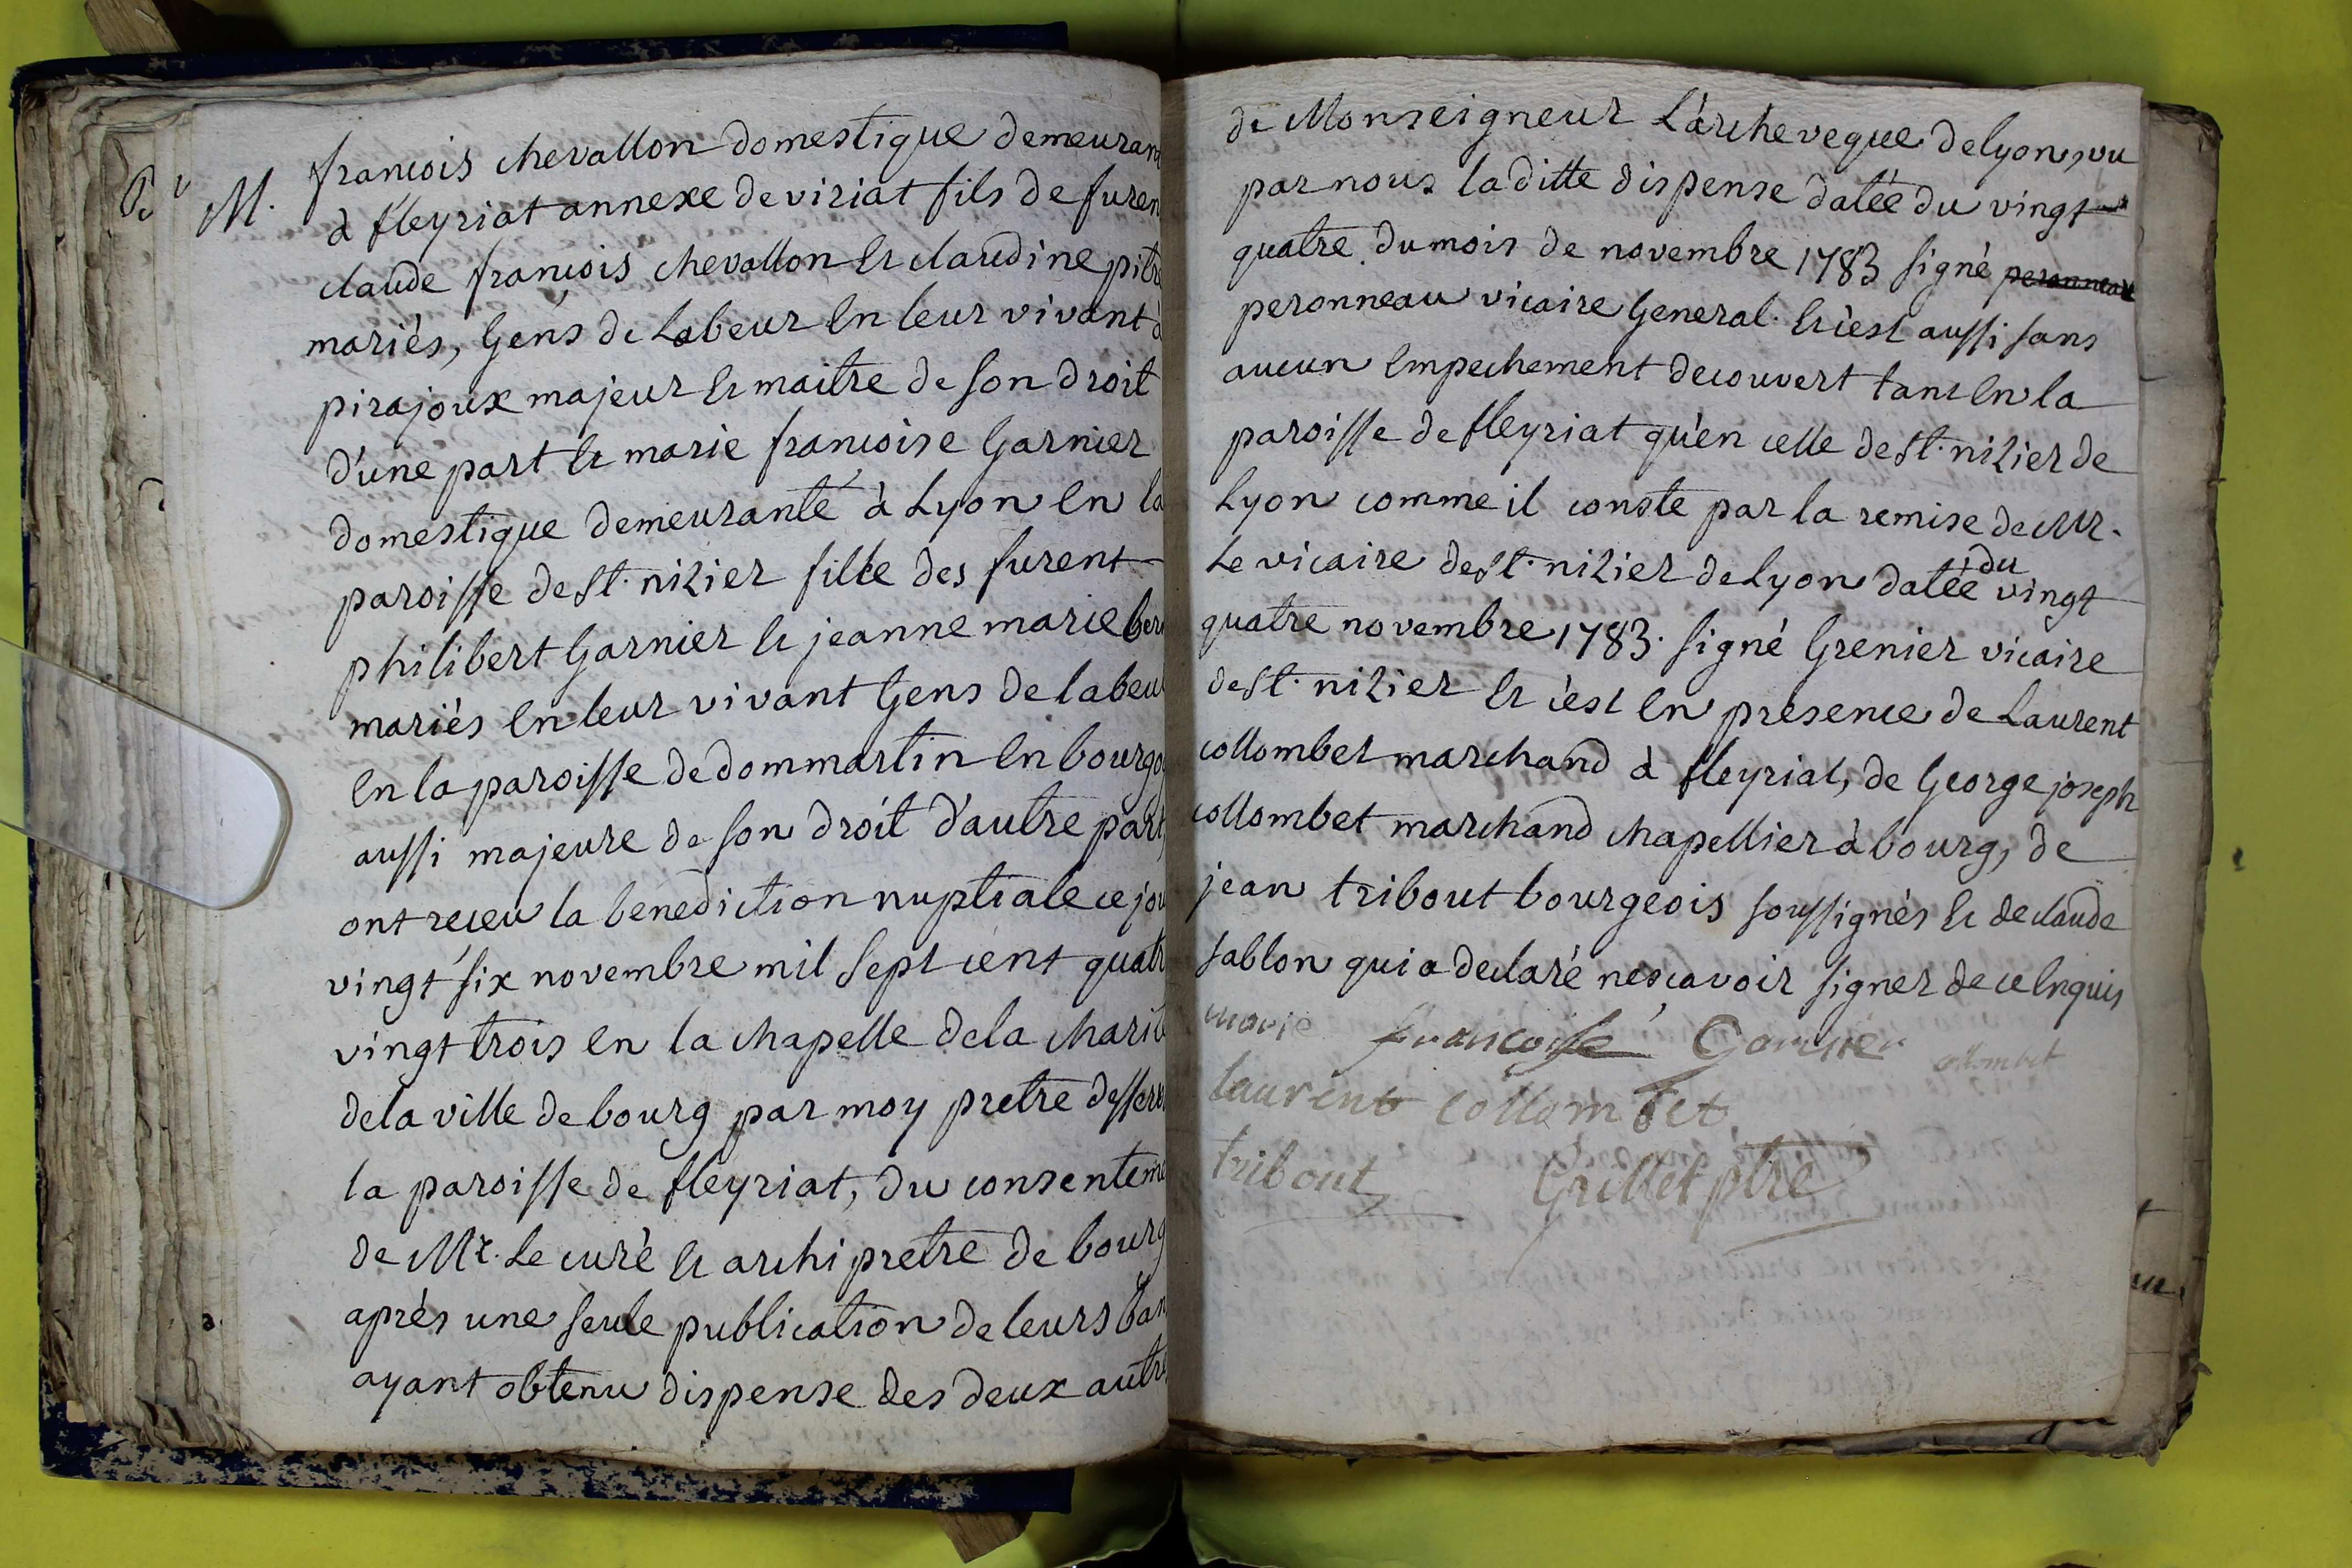 M.
francois chevallon domestique demeuran
à fleyriat annexe de viriat fils de furen
claude francois chevallon & claudine pitr
mariés, Gens de Labeur en leur vivant à
pirajoux majeur & maitre de son droit
d'une part & marie francoise Garnier
domestique demeurante à Lyon en la
paroisse de st. nizier fille des furent
philibert Garnier & jeanne marie ber
mariés en leur vivant Gens de labeu
en la paroisse de dommartin en bourgo
aussi majeure de son droit d'autre part,
ont receu la benediction nuptiale ce jou
vingt six novembre mil sept cent quatr
vingt trois en la chapelle de la charit
de la ville de bourg par moy pretre desserv
la paroisse de fleyriat, du consenteme
de Mr. Le curé & archipretre de bourg
après une seule publication de leurs ban
ayant obtenu dispense des deux autre
de Monseigneur L'archeveque de lyon, vu
par nous la ditte dispense datée du vingt
quatre du mois de novembre 1783 signé peronneau
peronneau vicaire General. & c'est aussi sans
aucun empechement decouvert tant en la
paroisse de fleyriat qu'en celle de st. nizier de
Lyon comme il conste par la remise de Mr.
Le vicaire de st. nizier de Lyon datée du vingt
quatre novembre 1783. signé Grenier vicaire
de st. nizier & c'est en presence de Laurent
collombet marchand à fleyriat, de George joseph
collombet marchand chapellier à bourg, de
jean tribout bourgeois soussignés & de claude
sablon qui a declaré ne scavoir signer de ce enquis
marie francoise Garnier collombet
laurent collombet
tribout Grillet ptre